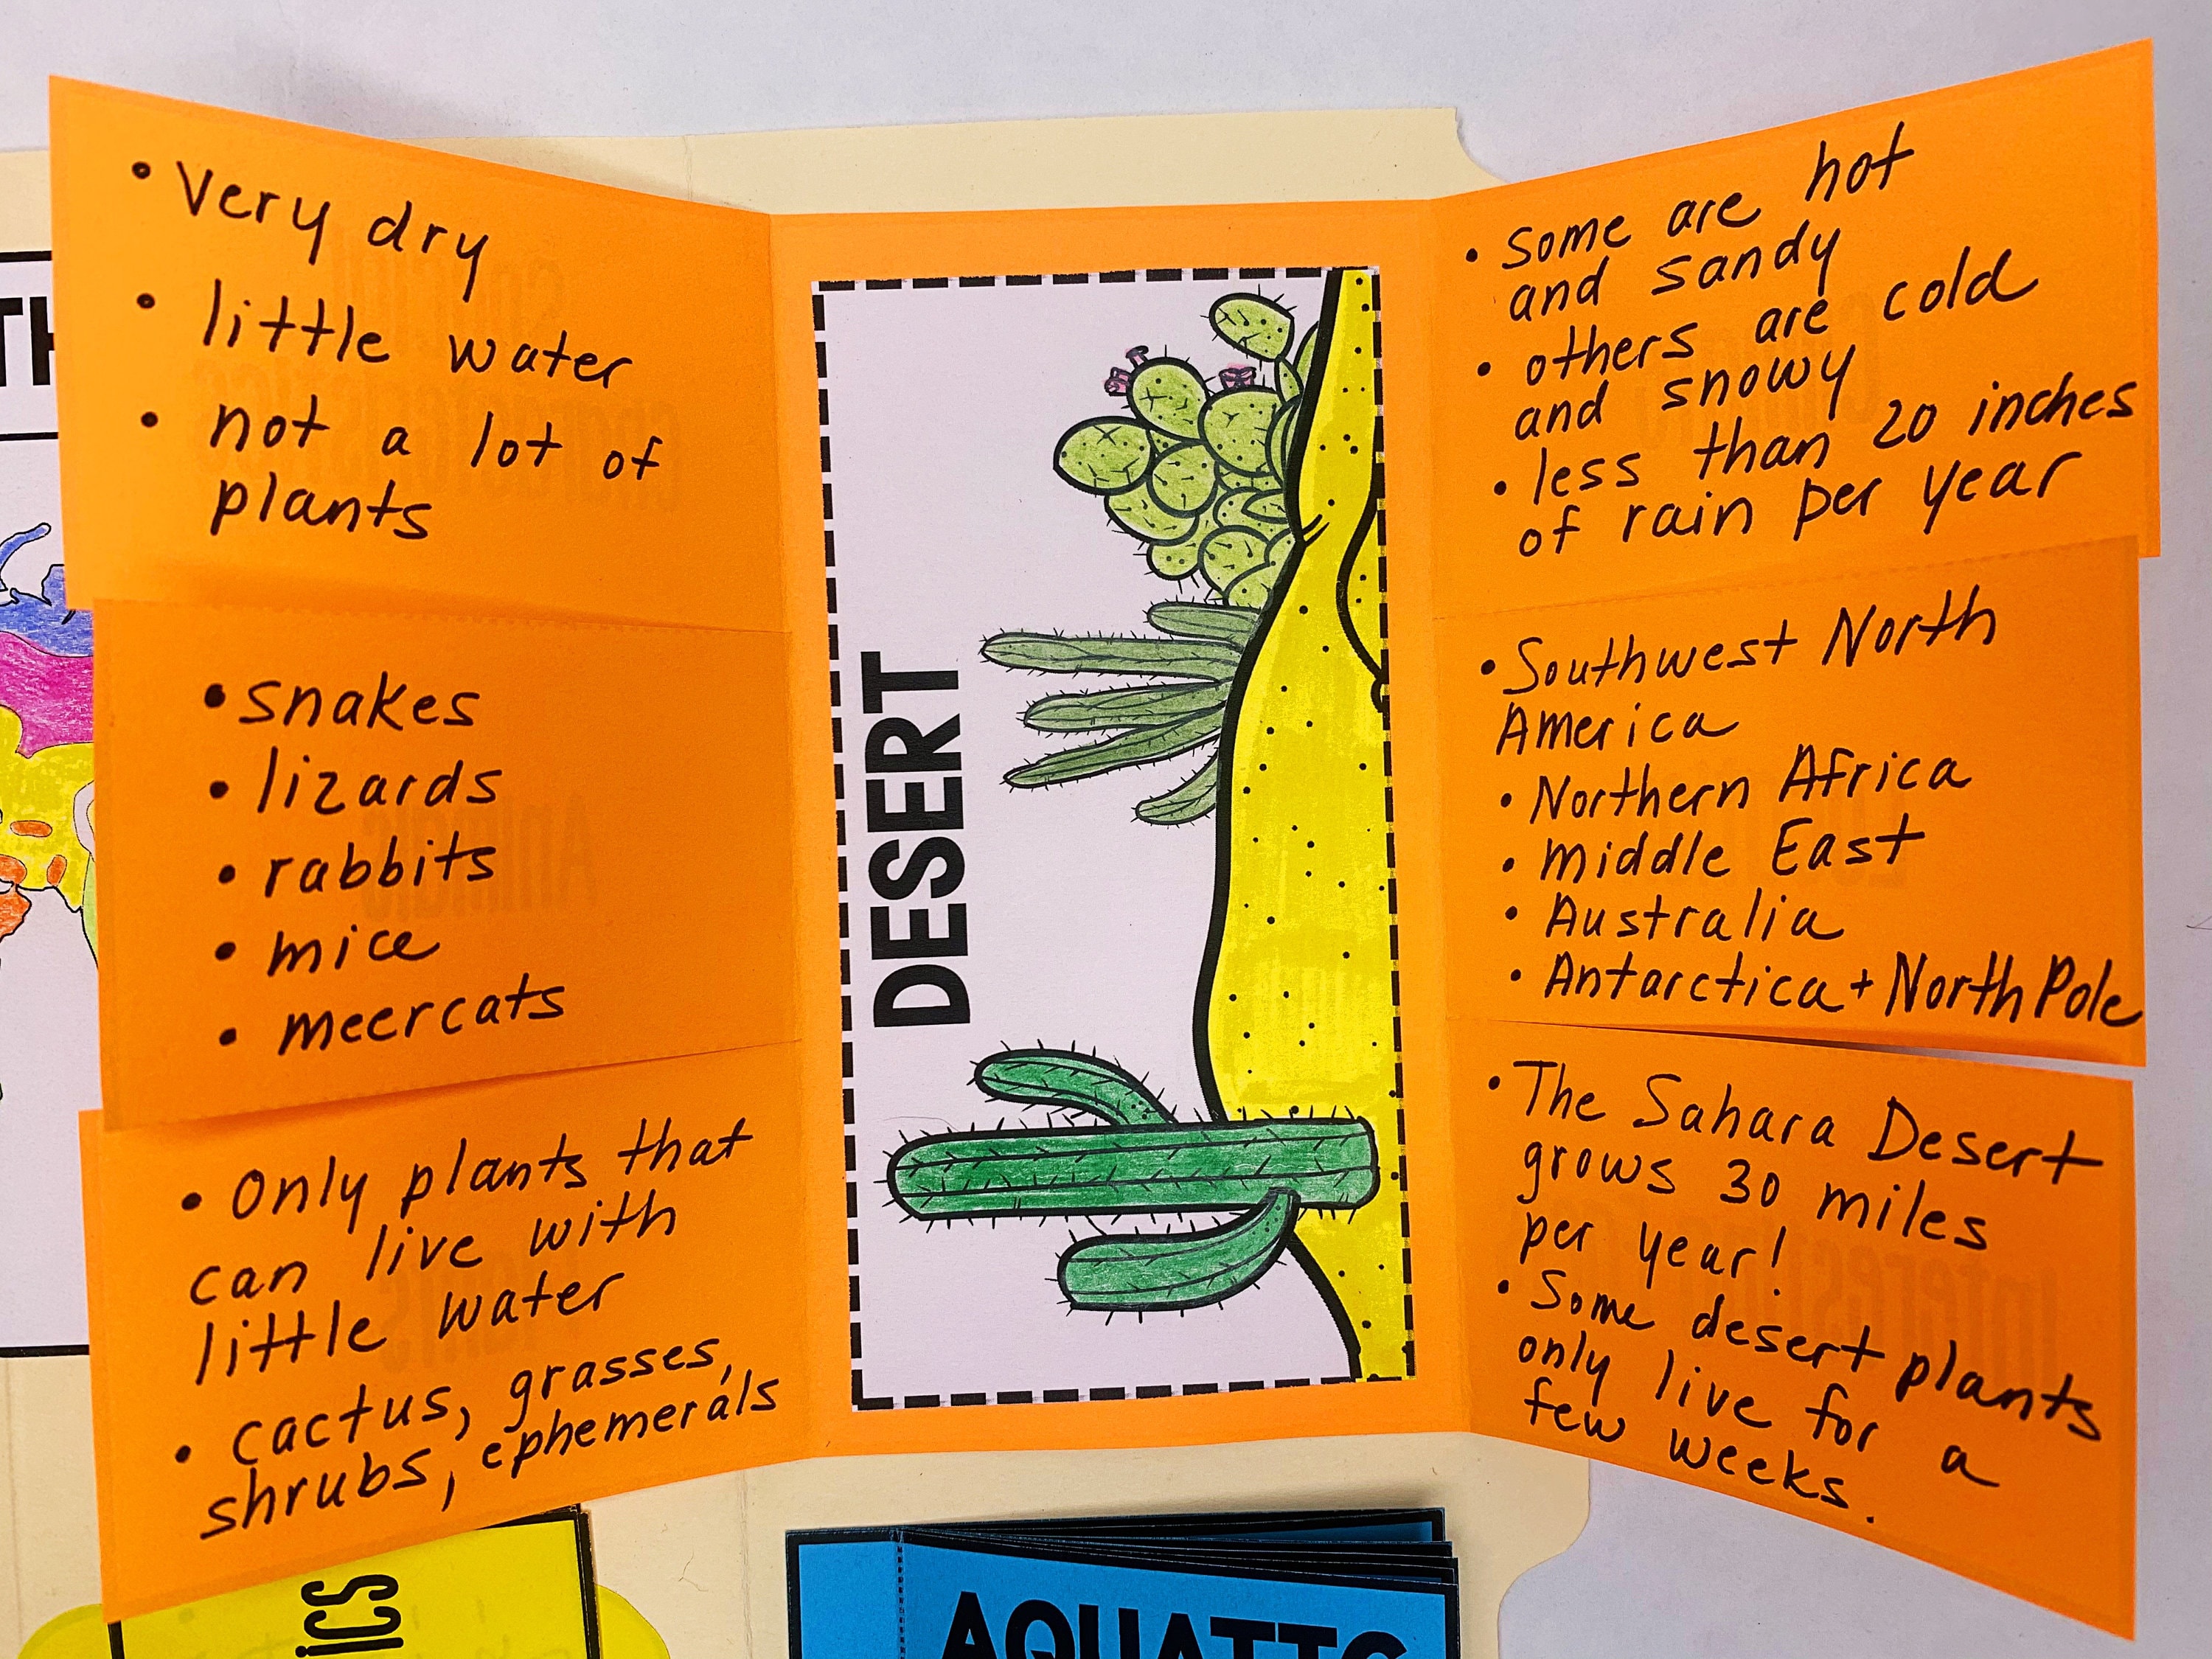 • very dry
• little water
• not a lot of
plants
• snakes
• lizards
• rabbits
• mice
• meercats
• Only plants that
can live with
little water
• cactus, grasses,
shrubs, ephemerals
DESERT
• some are hot
and sandy
• others are cold
and snowy
• less than 20 inches
of rain per year
• Southwest North
America
• Northern Africa
• Middle East
• Australia
• Antarctica + North Pole
• The Sahara Desert
grows 30 miles
per year!
• Some desert plants
only live for a
few weeks.
TH
ICS
AQUATIC